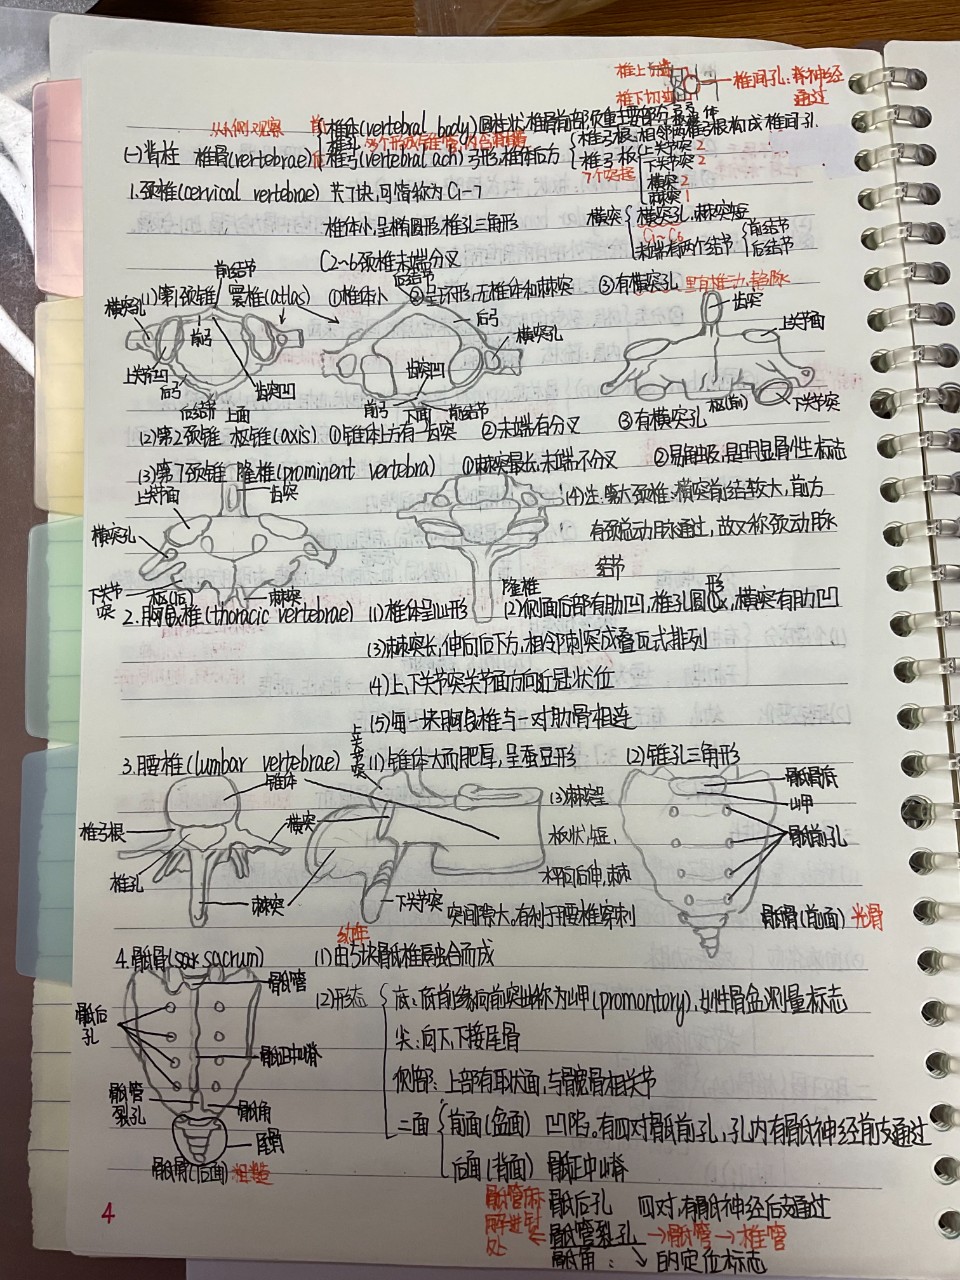 椎上切迹
椎下切迹
椎间孔：脊神经通过
从侧观察
(一)脊柱 椎骨(vertebrae)
前 椎体(vertebral body)圆柱状，椎骨前部负重主要部分
椎孔 多个形成椎管，内含脊髓
后 椎弓(vertebral ach)弓形，椎体后方
椎弓根：相邻两椎弓根构成椎间孔.
椎弓板
7个突起
上关节突 2
下关节突 2
横突 2
棘突 1
1.颈椎(cervical vertebrae) 共7块,可简称为C1-7
椎体小,呈椭圆形,椎孔三角形
C2~6颈椎末端分叉
横突
横突孔,棘突短
C1~C6
末端有两个结节
前结节
后结节
(1)第1颈椎 寰椎(atlas) ①椎体小 ②呈环形,无椎体和棘突 ③有横突孔 里有椎动、静脉
前结节
横突孔
前弓
上关节凹
后弓
后结节
上面
齿突凹
后结节
后弓
横突孔
齿突凹
前弓
下面
前结节
齿突
上关节面
枢(前)
下关节突
(2)第2颈椎 枢椎(axis) ①锥体上方有一齿突 ②末端有分叉 ③有横突孔
(3)第7颈椎 隆椎(prominent vertebra) ①棘突最长,末端不分叉 ②易触及,是明显骨性标志
上关节面
齿突
横突孔
下关节突
枢(后)
棘突
隆椎
(4)注:第六颈椎:横突前结较大,前方
有颈总动脉通过,故又称颈动脉
结节
2.胸段椎(thoracic vertebrae) (1)椎体呈心形 (2)侧面后部有肋凹,椎孔圆形,横突有肋凹
(3)棘突长,伸向后下方,相邻棘突成叠瓦式排列
(4)上、下关节突关节面方向近冠状位
(5)每一块胸段椎与一对肋骨相连
3.腰椎(lumbar vertebrae) (1)锥体大而肥厚,呈蚕豆形 (2)锥孔三角形
上关节突
锥体
椎弓根
横突
椎孔
棘突
下关节突
(3)棘突呈
板状,短,
水平向后伸,棘
突间隙大。有利于腰椎穿刺
骶骨底
岬
骶前孔
骶骨(前面) 光滑
4.骶骨(sacrum) (1)由5块骶椎融合而成
幼年
骶管
骶后孔
骶正中嵴
骶管裂孔
骶角
尾骨
骶骨(后面) 粗糙
(2)形态
底：底前缘向前突出称为岬(promontory),女性骨盆测量标志
尖：向下,下接尾骨
侧部：上部有耳状面,与髋骨相关节
二面
前面(盆面) 凹陷。有四对骶前孔,孔内有骶神经前支通过
后面(背面) 骶正中嵴
骶后孔 四对,有骶神经后支通过
骶管裂孔 →骶管→椎管
骶角：↘的定位标志
骶管麻醉进针处
4